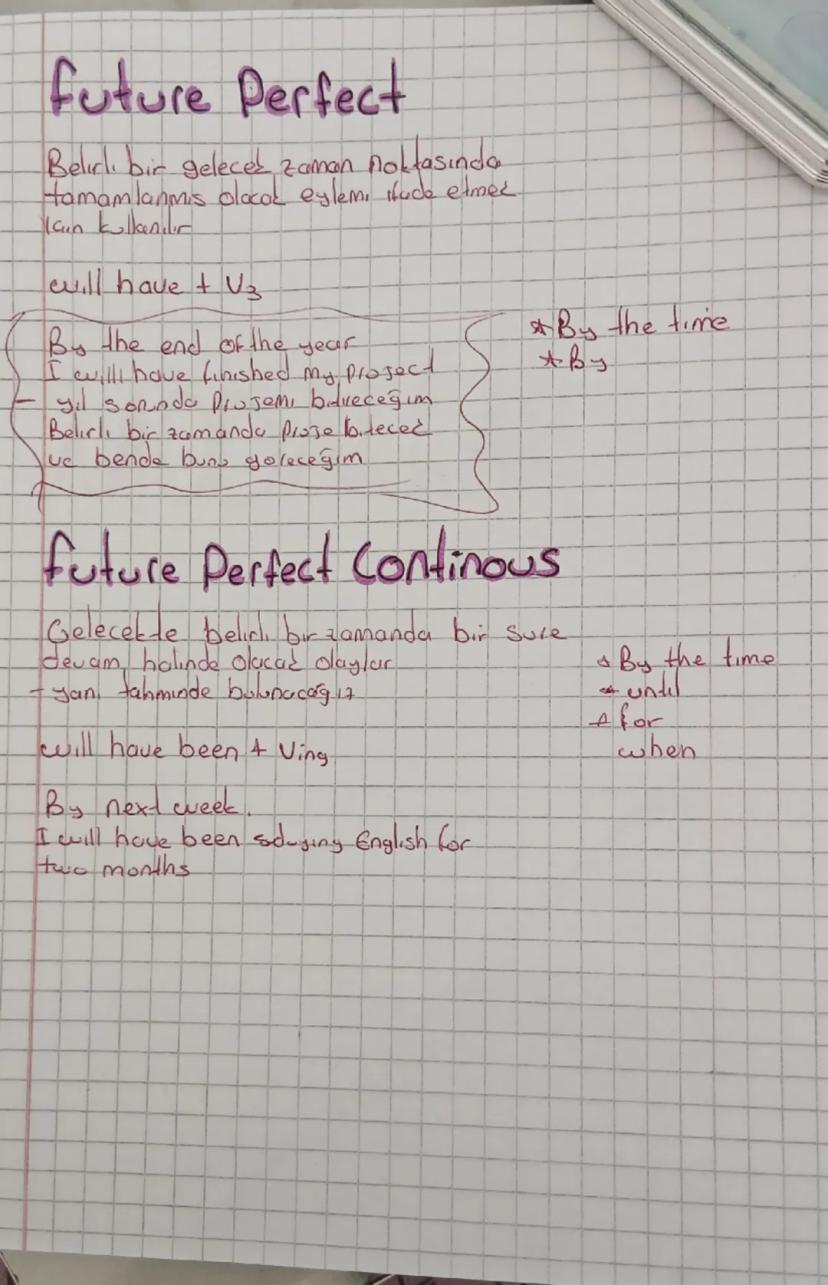 Future Perfect
Belirli bir gelecek zaman noktasında
tamamlanmıs olacak eylemi ifade etmek
icin kullanılır
will have + V3
By the end of the year
I willl have finished my project
yıl sonunda Projemi bitireceğim
Belirli bir zamanda Proje bitecek
ve bende bunu göreceğim
* By the time
* By
Future Perfect Continous
Gelecekte belirli bir zamanda bir sure
devam halinde olacak olaylar
→ yani tahminde bulunacağız
* By the time
* until
* for
when
will have been + Ving
By next week.
I will have been sduying English for
two months